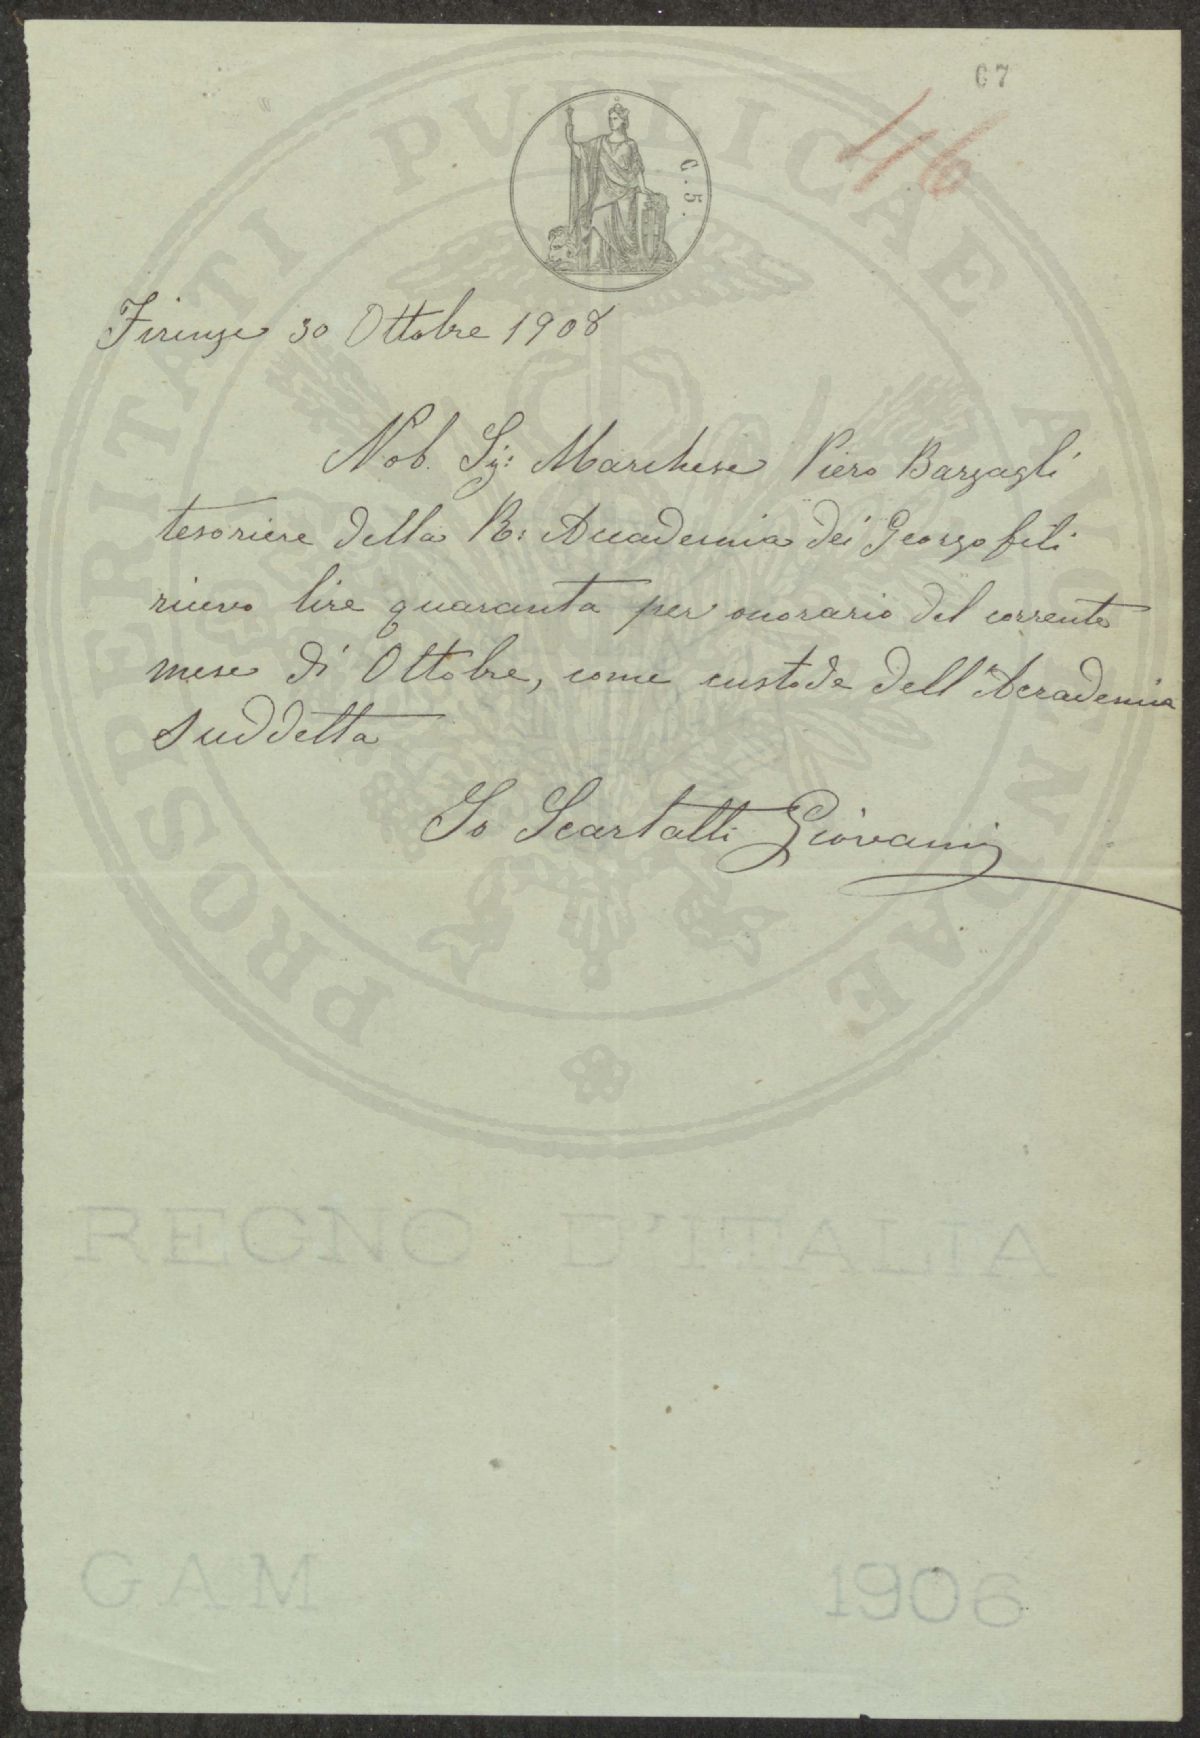 67
116
C. 5.
PROSPERITATI PUBLICAE AUGENDAE
Firenze 30 Ottobre 1908
Nob. Sig: Marchese Piero Bargagli
tesoriere della R: Accademia dei Georgofili
ricevo lire quaranta per onorario del corrente
mese di Ottobre, come custode dell'Accademia
suddetta
Io Scarlatti Giovanni
REGNO D'ITALIA
GAM 1906